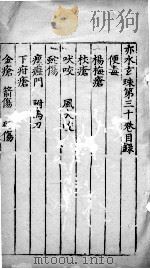 赤水玄珠第三十卷目錄
便毒
楊梅瘡
杖瘡
吠咬 風入
傷
門 附馬刀
下疳瘡
金瘡 箭傷 傷
mtoou.info